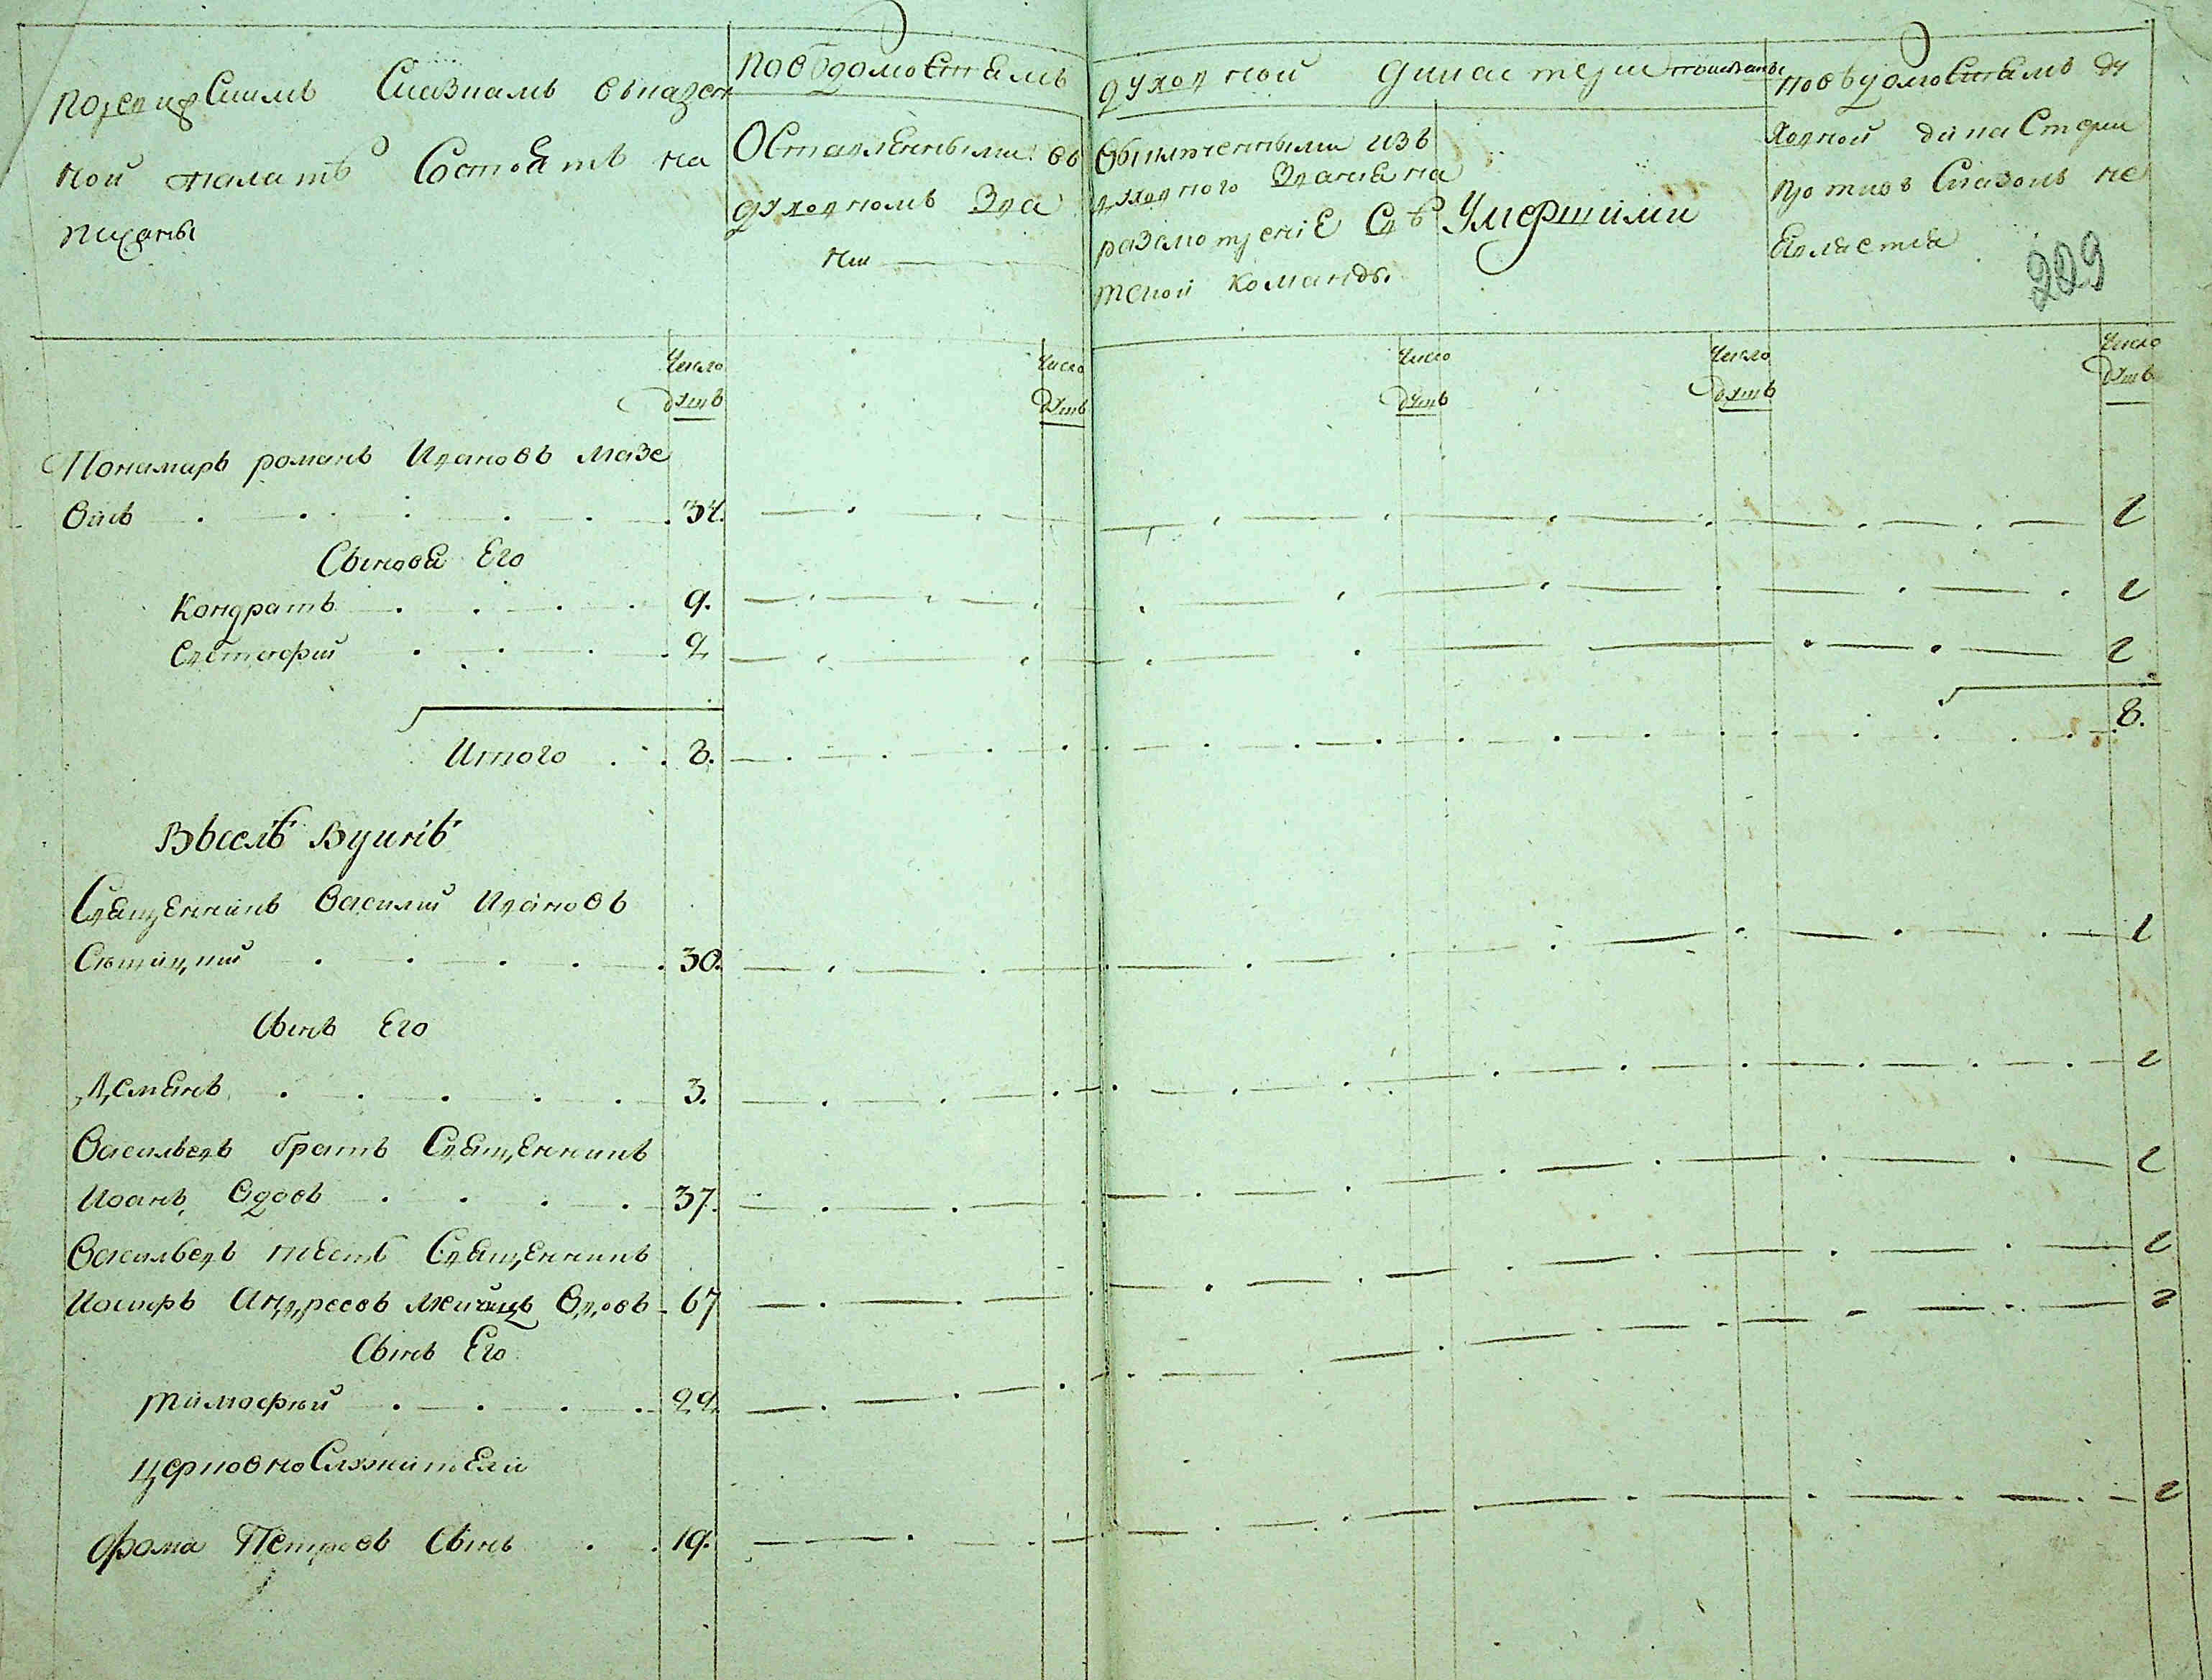 По ревизскимъ Сказкамъ въ казен
ной палатѣ Состоятъ на
писаны
По вѣдомостямъ
духовной дикастеріи показаны
Оставленными въ
духовномъ зва
ніи
Обключенными изъ
духовнаго званія на
разсмотреніе Свѣ
тской команды
Умершими
По вѣдомостямъ ду
ховной дикастеріи
противъ Сказокъ не
является
229
Число душъ
Число душъ
Число душъ
Число душъ
Число душъ
Пономарь романъ Ивановъ Мазе
викъ 34. 1
Сыновья Его
Кондратъ 9. 1
Евстафій 2 1
Итого 8. 8.
Въ селѣ Буцнѣ
Священникъ Василий Ивановъ
30. 1
Сынъ Его
Деменъ 3. 1
Васильевъ братъ Священникъ
Иоанъ, Вдовъ 37. 1
Васильевъ тесть Священникъ
Иосифъ Андреевъ Вдовъ 67 1
Сынъ Его
тимофѣй 22 1
церковнослужители
Фома Петровъ Сынъ 19. 1